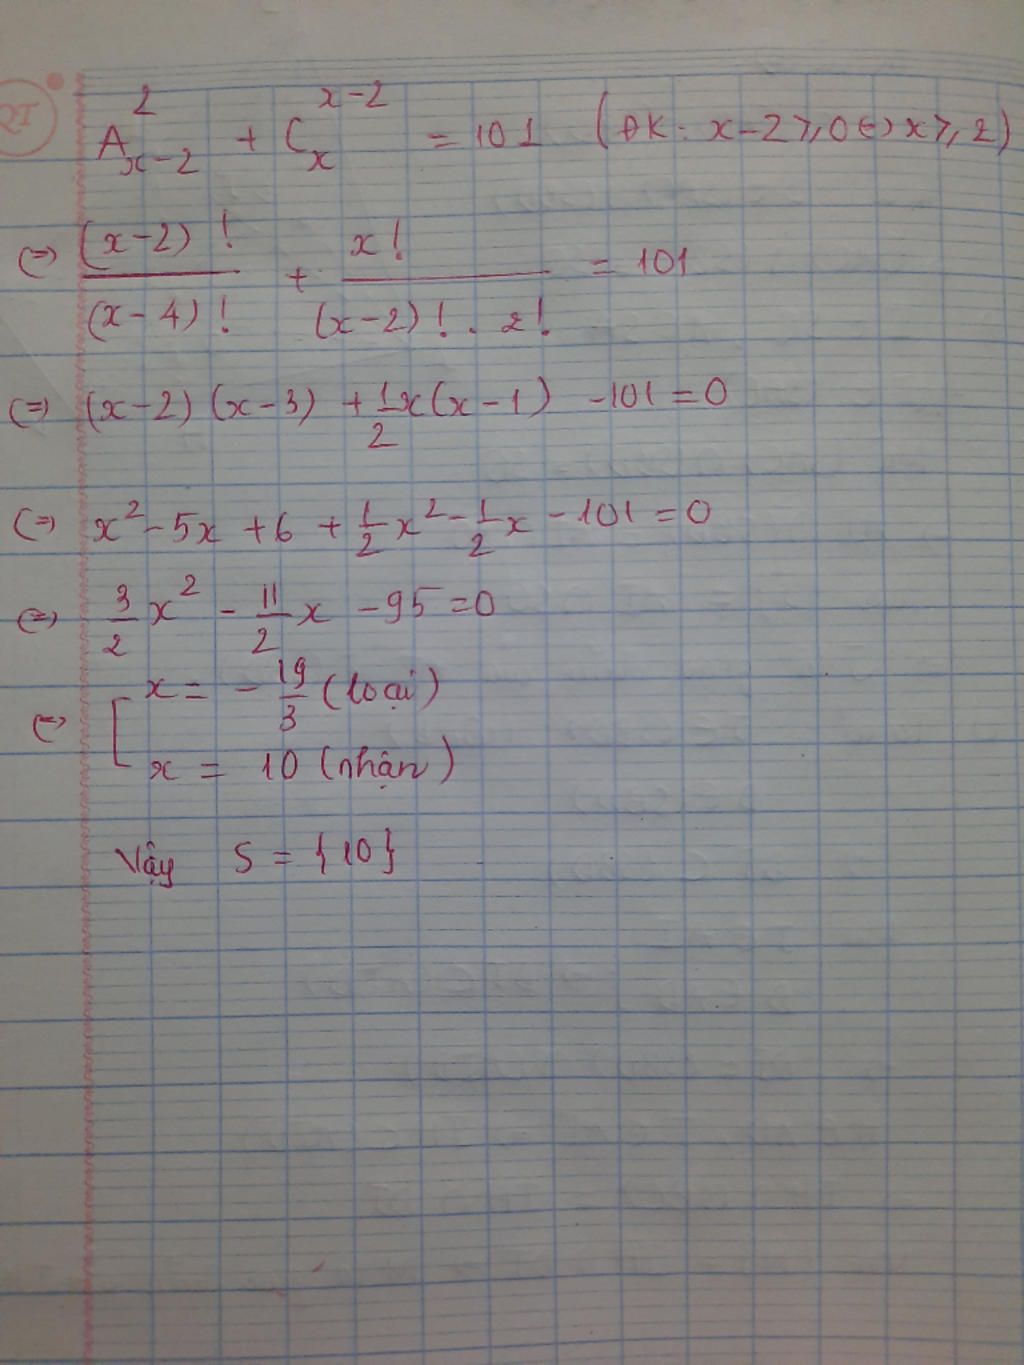 A²ₓ₋₂ + Cₓˣ⁻² = 101 (ĐK: x-2 ≥ 0 ⇔ x ≥ 2)
⇔ (x-2)!/(x-4)! + x!/((x-2)! . 2!) = 101
⇔ (x-2)(x-3) + 1/2 x(x-1) - 101 = 0
⇔ x² - 5x + 6 + 1/2 x² - 1/2 x - 101 = 0
⇔ 3/2 x² - 11/2 x - 95 = 0
⇔ [ x = - 19/3 (loại)
x = 10 (nhận)
Vậy S = {10}